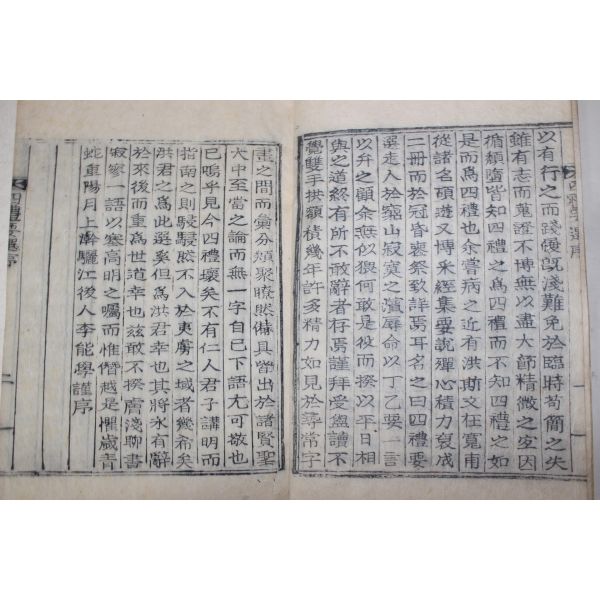 以有行之而踐履旣淺難免於臨時苟簡之失
雖有志而蒐證不博無以盡大師精微之密因
循頹墮皆知四禮之爲四禮而不知四禮之如
是而爲四禮也余嘗病之近有洪斯文在寬甫
從諸名碩遊又博采經集要說殫心積力裒成
二冊而於冠昏喪祭致詳焉耳名之曰四禮要
選走入於窮山寂寞之濱辱命以丁乙要一言
以弁之顧余無似猥何敢是役而揆以平日相
與之道終有所不敢辭者存焉謹拜受盥讀不
覺雙手拱額積幾年許多精力如見於尋常字
畫之間而彙分類聚瞭然備具皆出於諸賢聖
大中至當之論而無一字自已下語尤可敬也
已嗚乎見今四禮壞矣不有仁人君子講明而
指南之則駸駸然不入於夷虜之域者幾希矣
洪君之爲此選奚但爲洪君幸也其將永有辭
於來後而重爲世道幸也玆敢不揆膚淺聊書
寂寥一語以塞高明之囑而惟僭越是懼歲靑
蛇重陽月上澣驪江後人李能學謹序
四禮要選序
二